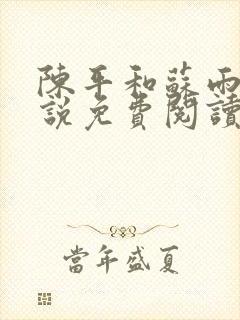 陳平和蘇雨
說免費閱讀
當年盛夏